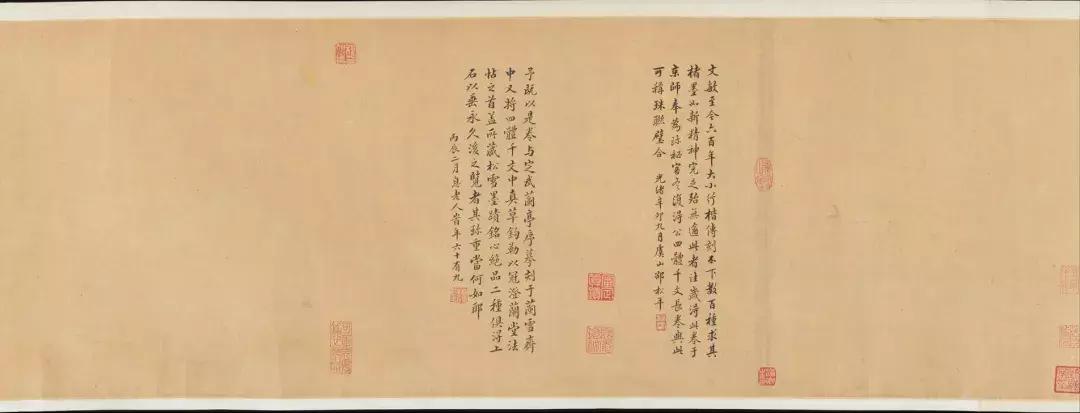 文敏至今六百年大小行楷傳刻不下數百種求其
楮墨如新精神完足殆無逾此者往歲得此卷于
京師奉為珍秘客冬復得公四體千文長卷與此
可稱珠聯璧合 光緒辛卯九月虞山邵松年
予既以是卷与定武蘭亭序摹刻于蘭雪齋
中又將四體千文中真草鉤勒以冠澄蘭堂法
帖之首蓋所藏松雪墨蹟銘心絕品二種俱得上
石以垂永久後之覽者其珍重當何如耶
丙辰二月息老人省年六十有九